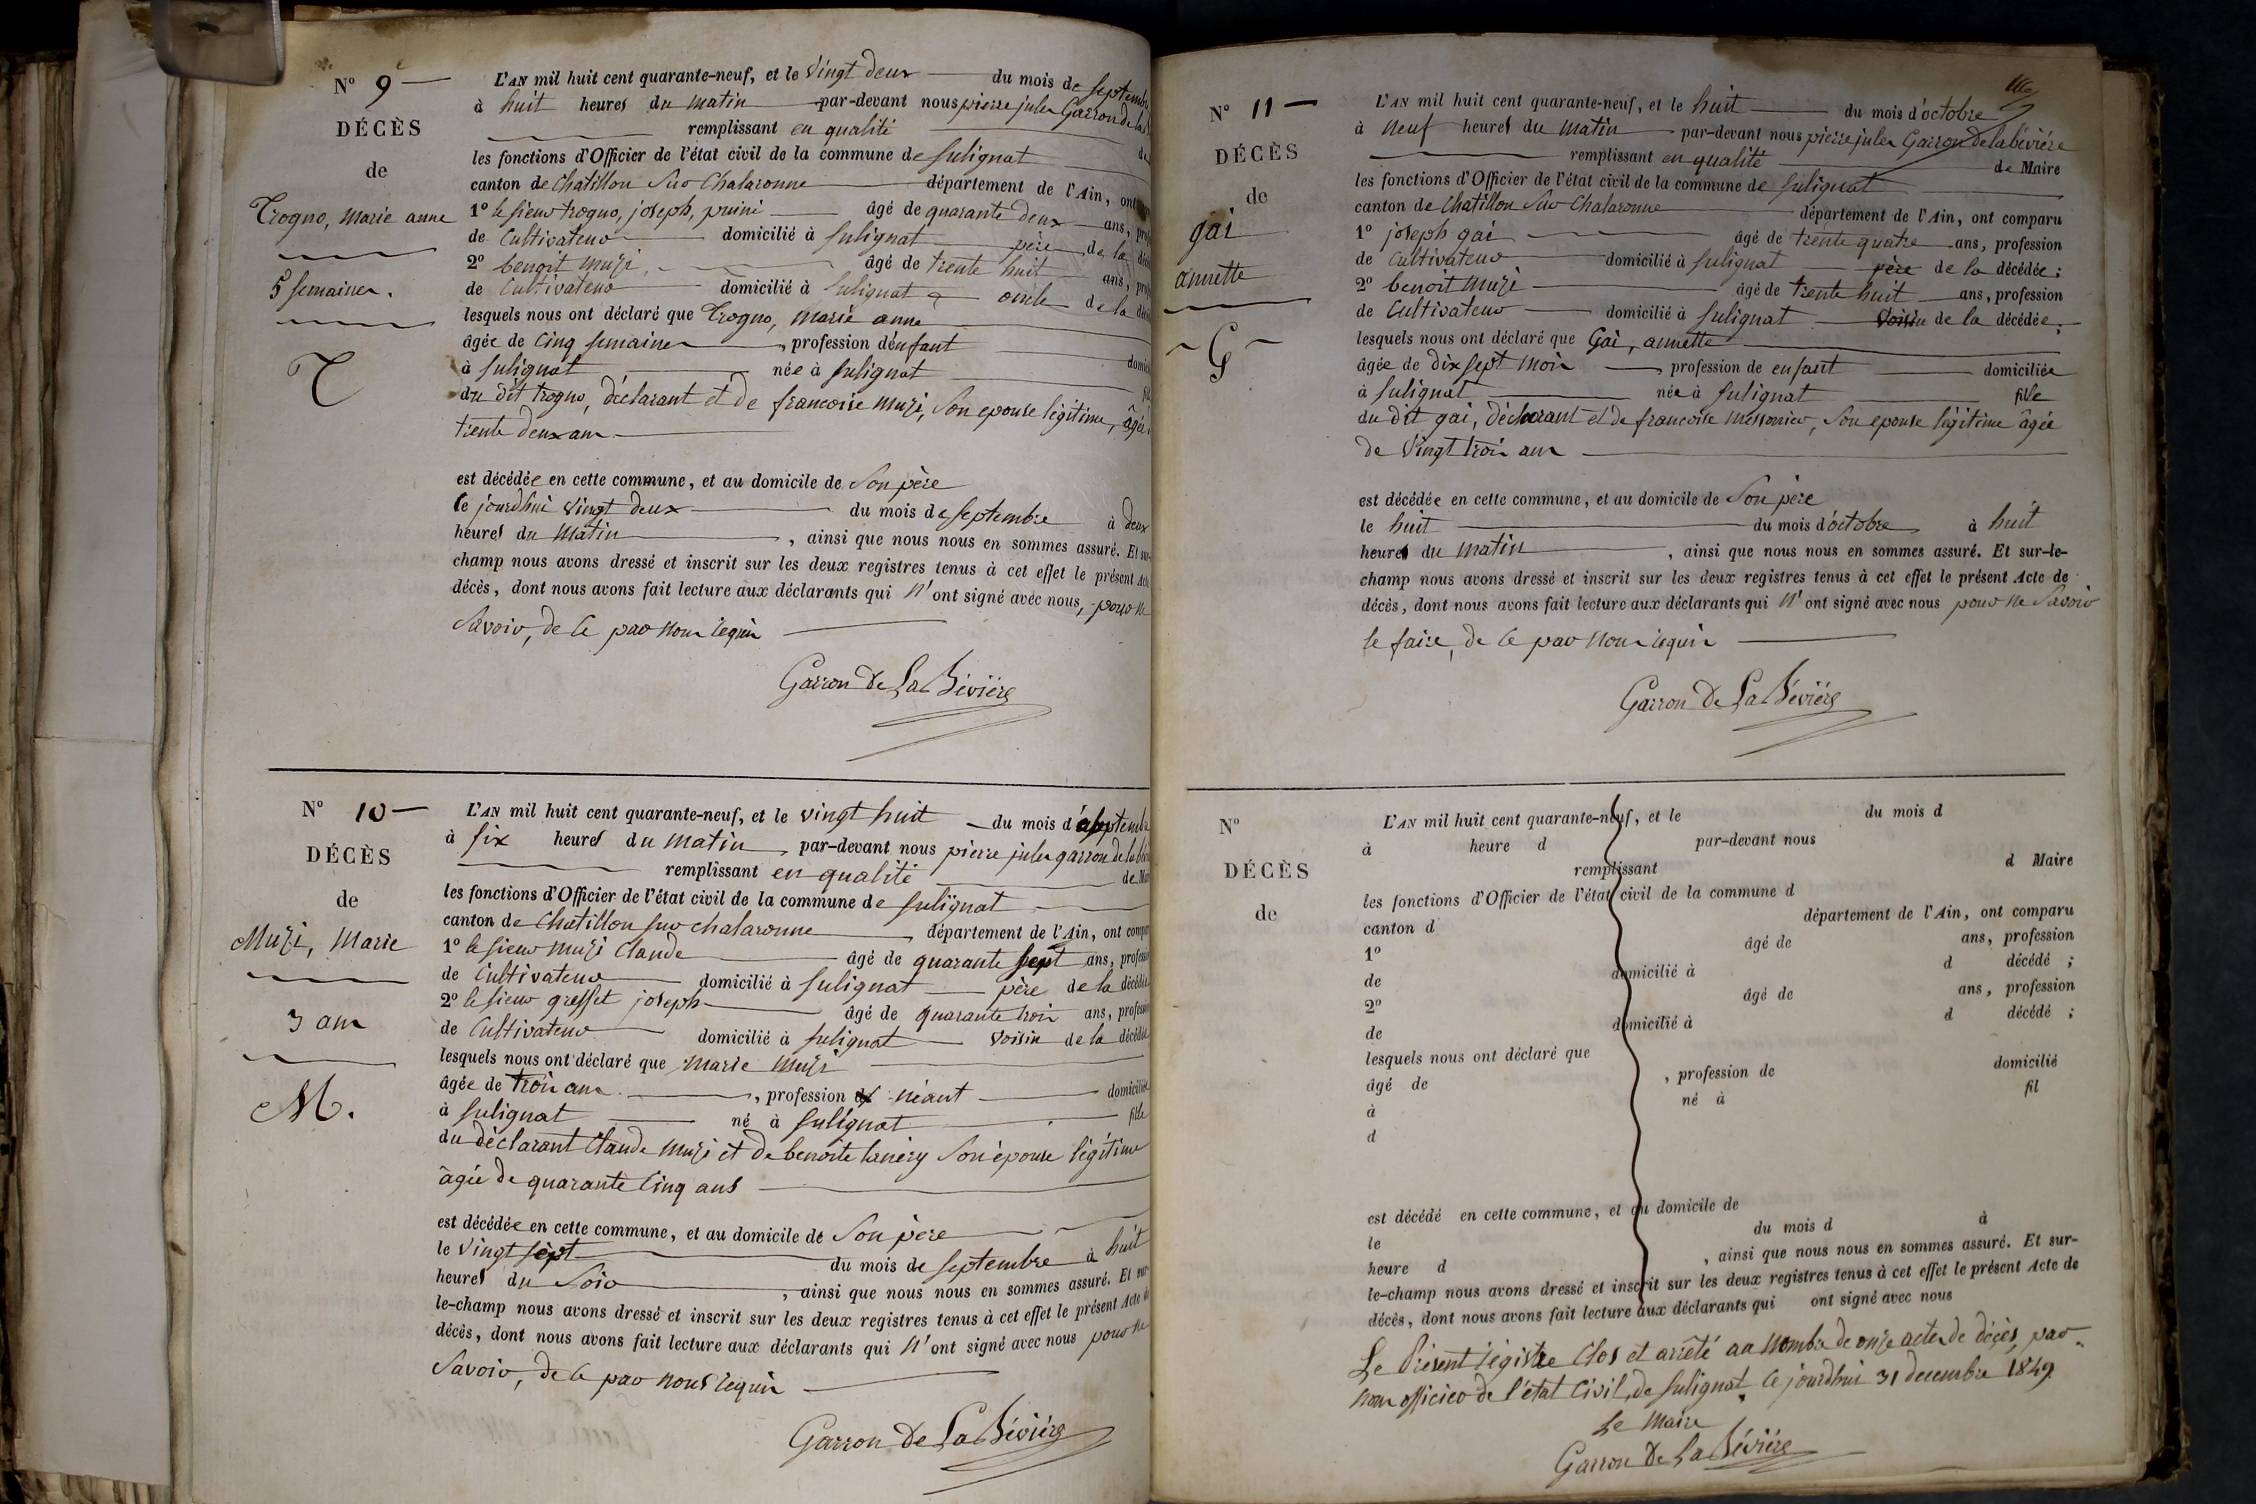 N° 9
DÉCÈS
de
Trogno, Marie anne
5 semaines.
T
L'AN mil huit cent quarante-neuf, et le vingt deux du mois de septembre
à huit heures du matin par-devant nous pierre jules Garron de la
remplissant en qualité de
les fonctions d'Officier de l'état civil de la commune de sulignat
canton de Chatillon sur Chalaronne département de l'Ain, ont
1° le sieur trogno, joseph, puiné âgé de quarante deux ans, prof
de Cultivateur domicilié à sulignat père de la déc
2° benoit muzi, âgé de trente huit ans, prof
de Cultivateur domicilié à sulignat oncle de la déc
lesquels nous ont déclaré que Trogno, marie anne
âgée de cinq semaines, profession d'enfant domici
à sulignat née à sulignat fil
du dit trogno, déclarant et de francoise muzi, son epouse légitime, âgée
trente deux ans
est décédée en cette commune, et au domicile de Son père
le jourdhui vingt deux du mois de septembre à deux
heures du matin, ainsi que nous nous en sommes assuré. Et sur-
champ nous avons dressé et inscrit sur les deux registres tenus à cet effet le présent Acte
décès, dont nous avons fait lecture aux déclarants qui n'ont signé avec nous, pour ne
Savoir, de ce par nous requis
Garron de La Bévière
N° 10
DÉCÈS
de
Muzi, Marie
3 ans
M.
L'AN mil huit cent quarante-neuf, et le vingt huit du mois de septembre
à six heures du matin par-devant nous pierre jules garron de la bévi
remplissant en qualité de Mai
les fonctions d'Officier de l'état civil de la commune de sulignat
canton de Chatillon sur chalaronne, département de l'Ain, ont compa
1° le sieur muzi Claude âgé de quarante sept ans, professi
de Cultivateur domicilié à sulignat père de la décédée
2° le sieur greffet joseph âgé de quarante trois ans, profess
de Cultivateur domicilié à sulignat voisin de la décédée
lesquels nous ont déclaré que marie muzi
âgée de trois ans, profession de néant domiciliée
à sulignat né à sulignat fille
du déclarant Claude muzi et de benoite laniery son épouse légitime
âgée de quarante cinq ans
est décédée en cette commune, et au domicile de Son père
le vingt sept du mois de septembre à huit
heures du Soir, ainsi que nous nous en sommes assuré. Et sur-
le-champ nous avons dressé et inscrit sur les deux registres tenus à cet effet le présent Acte de
décès, dont nous avons fait lecture aux déclarants qui n'ont signé avec nous pour ne
Savoir, de ce par nous requis
Garron de La Bévière
N° 11
DÉCÈS
de
gai
annette
G
L'AN mil huit cent quarante-neuf, et le huit du mois d'octobre
à neuf heures du matin par-devant nous pierre jules Garron de la bévière
remplissant en qualité de Maire
les fonctions d'Officier de l'état civil de la commune de sulignat
canton de Chatillon sur Chalaronne département de l'Ain, ont comparu
1° joseph gai âgé de trente quatre ans, profession
de Cultivateur domicilié à sulignat père de la décédée;
2° benoit muzi âgé de trente huit ans, profession
de Cultivateur domicilié à sulignat voisin de la décédée;
lesquels nous ont déclaré que Gai, annette
âgée de dix sept mois, profession de enfant domiciliée
à sulignat née à sulignat fille
du dit gai, déclarant et de francoise messonier, son epouse légitime âgée
de vingt trois ans
est décédée en cette commune, et au domicile de Son père
le huit du mois d'octobre à huit
heures du matin, ainsi que nous nous en sommes assuré. Et sur-le-
champ nous avons dressé et inscrit sur les deux registres tenus à cet effet le présent Acte de
décès, dont nous avons fait lecture aux déclarants qui n'ont signé avec nous pour ne Savoir
le faire, de ce par nous requis
Garron de La Bévière
N°
DÉCÈS
de
L'AN mil huit cent quarante-neuf, et le du mois d
à heure d par-devant nous
remplissant d Maire
les fonctions d'Officier de l'état civil de la commune d
canton d département de l'Ain, ont comparu
1° âgé de ans, profession
de domicilié à d décédé ;
2° âgé de ans, profession
de domicilié à d décédé ;
lesquels nous ont déclaré que
âgé de , profession de domicilié
à né à fil
d
est décédé en cette commune, et au domicile de
le du mois d à
heure d , ainsi que nous nous en sommes assuré. Et sur-
le-champ nous avons dressé et inscrit sur les deux registres tenus à cet effet le présent Acte de
décès, dont nous avons fait lecture aux déclarants qui ont signé avec nous
Le Présent régistre Clos et arrêté au nombre de onze actes de décès, par
nous officier de l'état Civil, de sulignat, le jourdhui 31 decembre 1849.
Le Maire
Garron de La Bévière